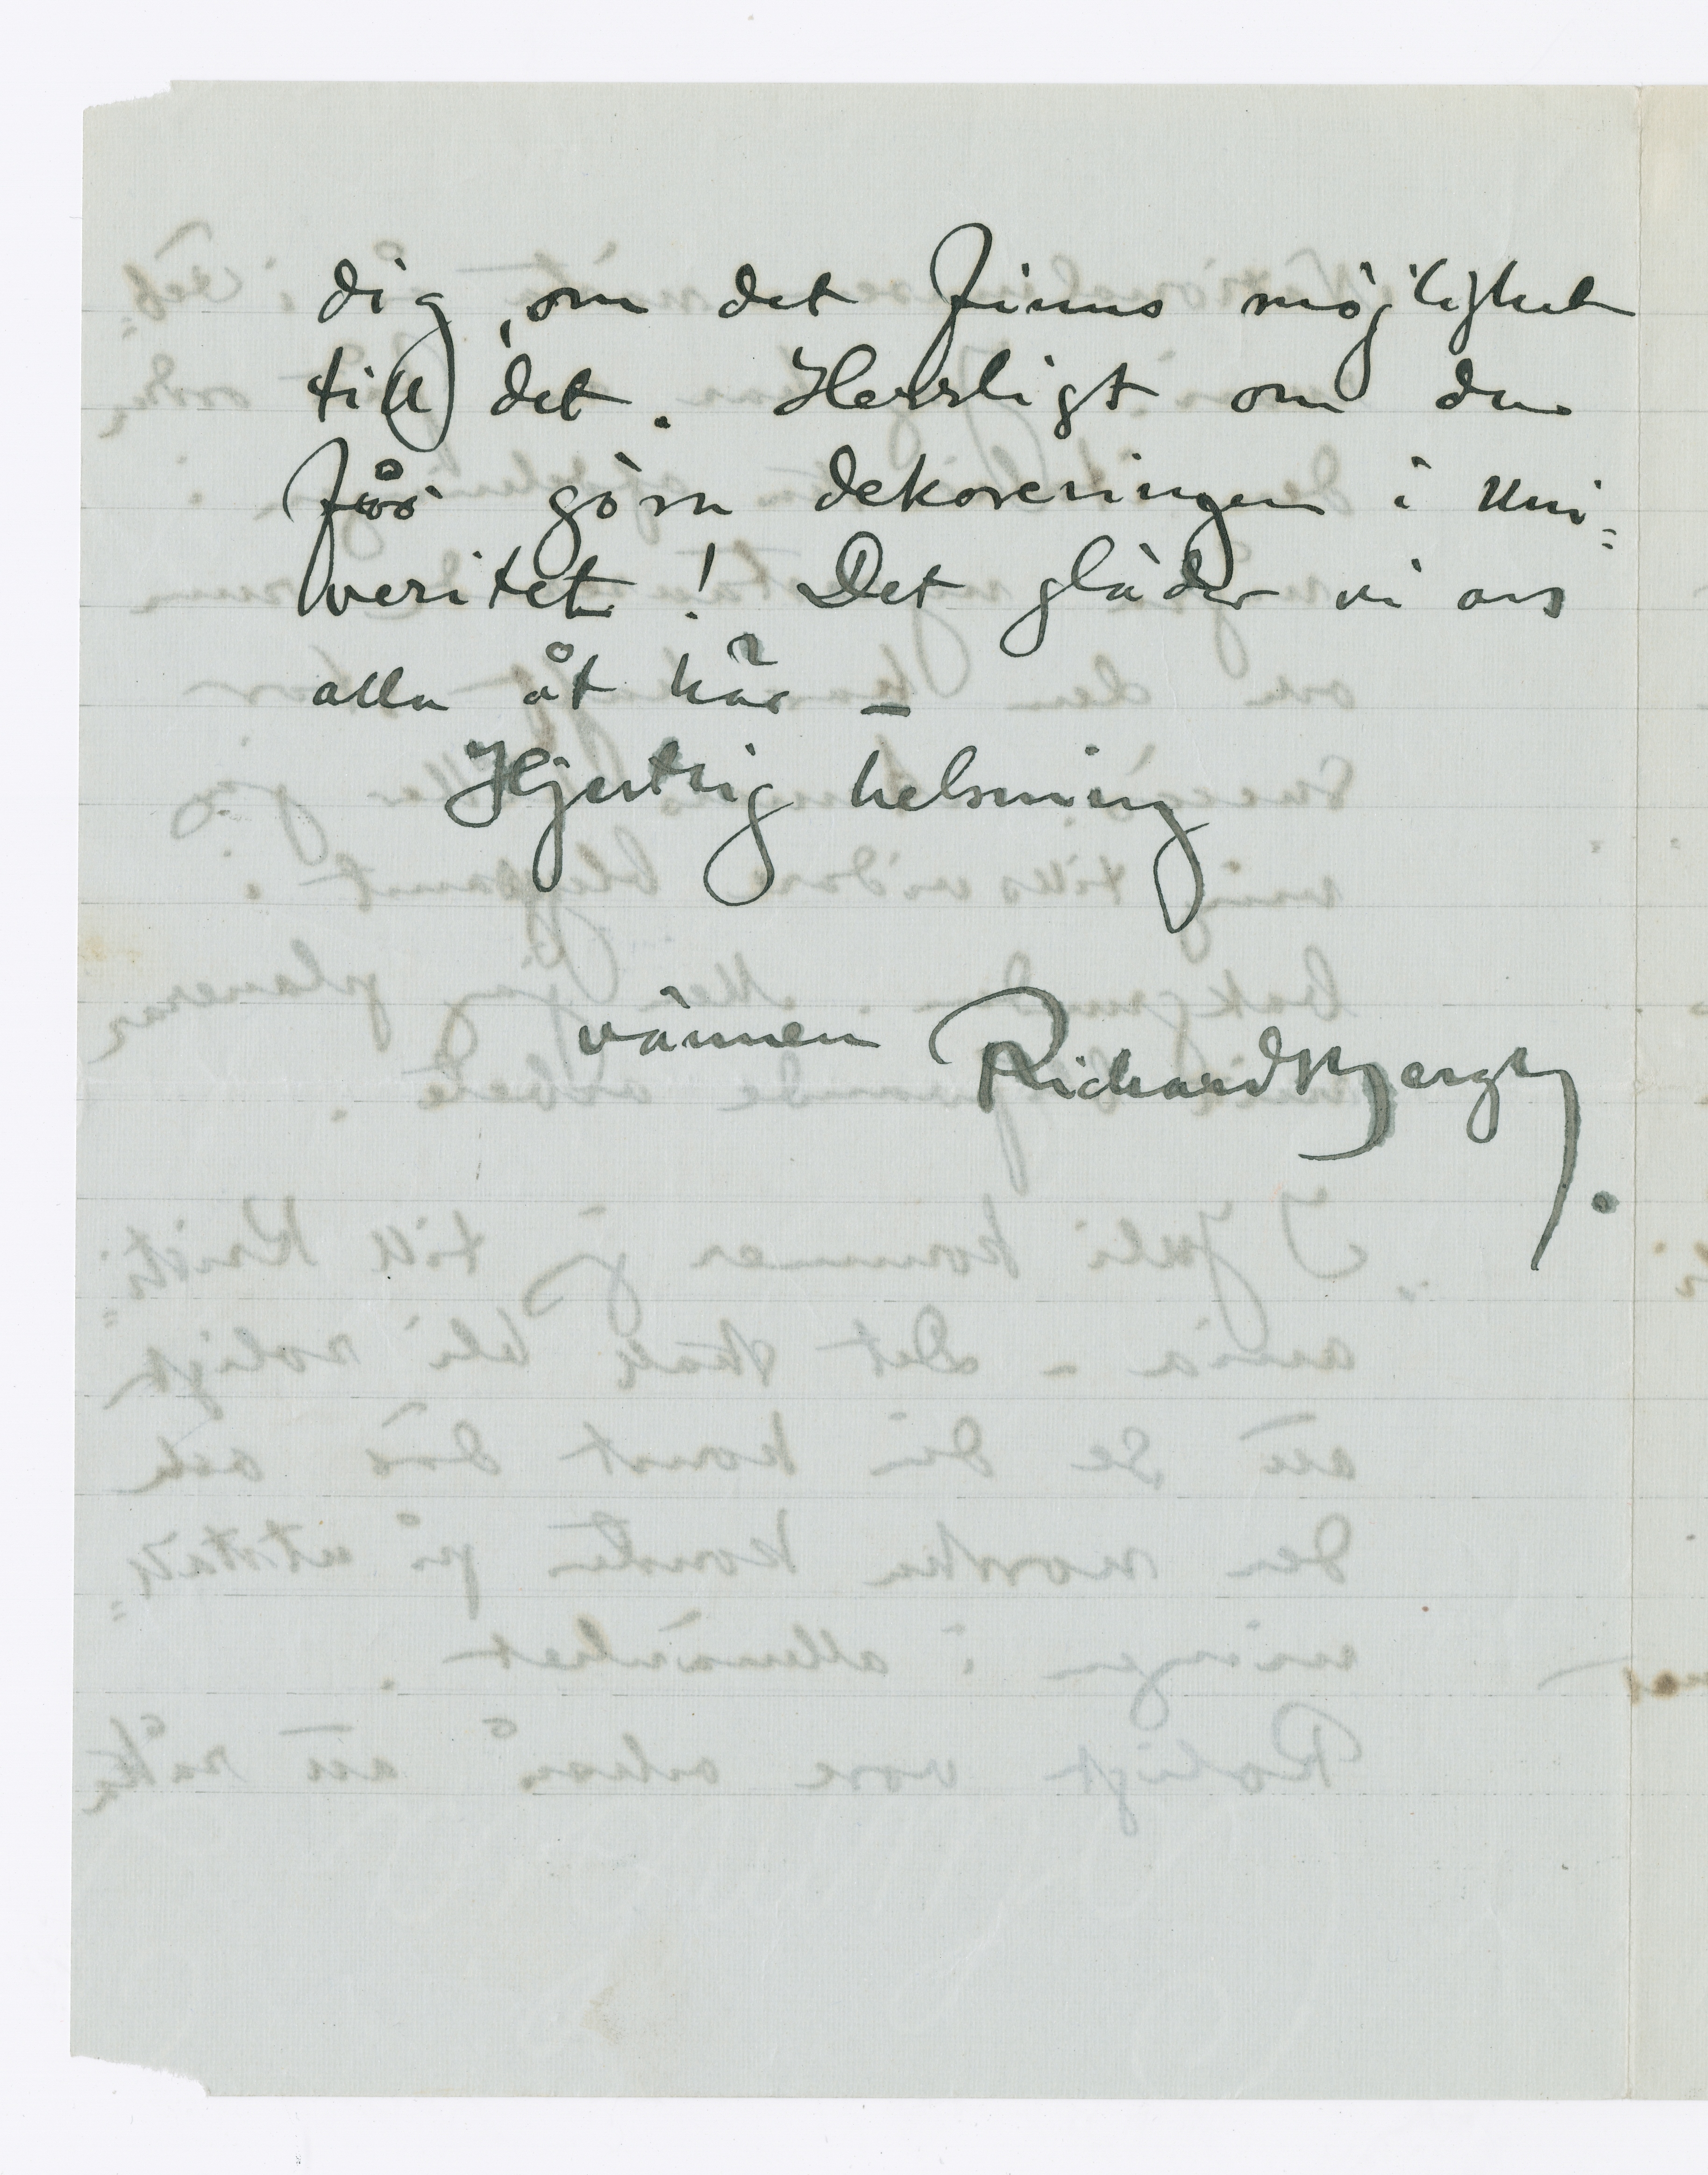 dig, om det finns möjlighet
till det. Herrligt om du
får göra dekoreringen i Uni=
veritet! Det gläder vi oss
alla åt här –
Hjertlig helsning
vännen Richard Bergh.